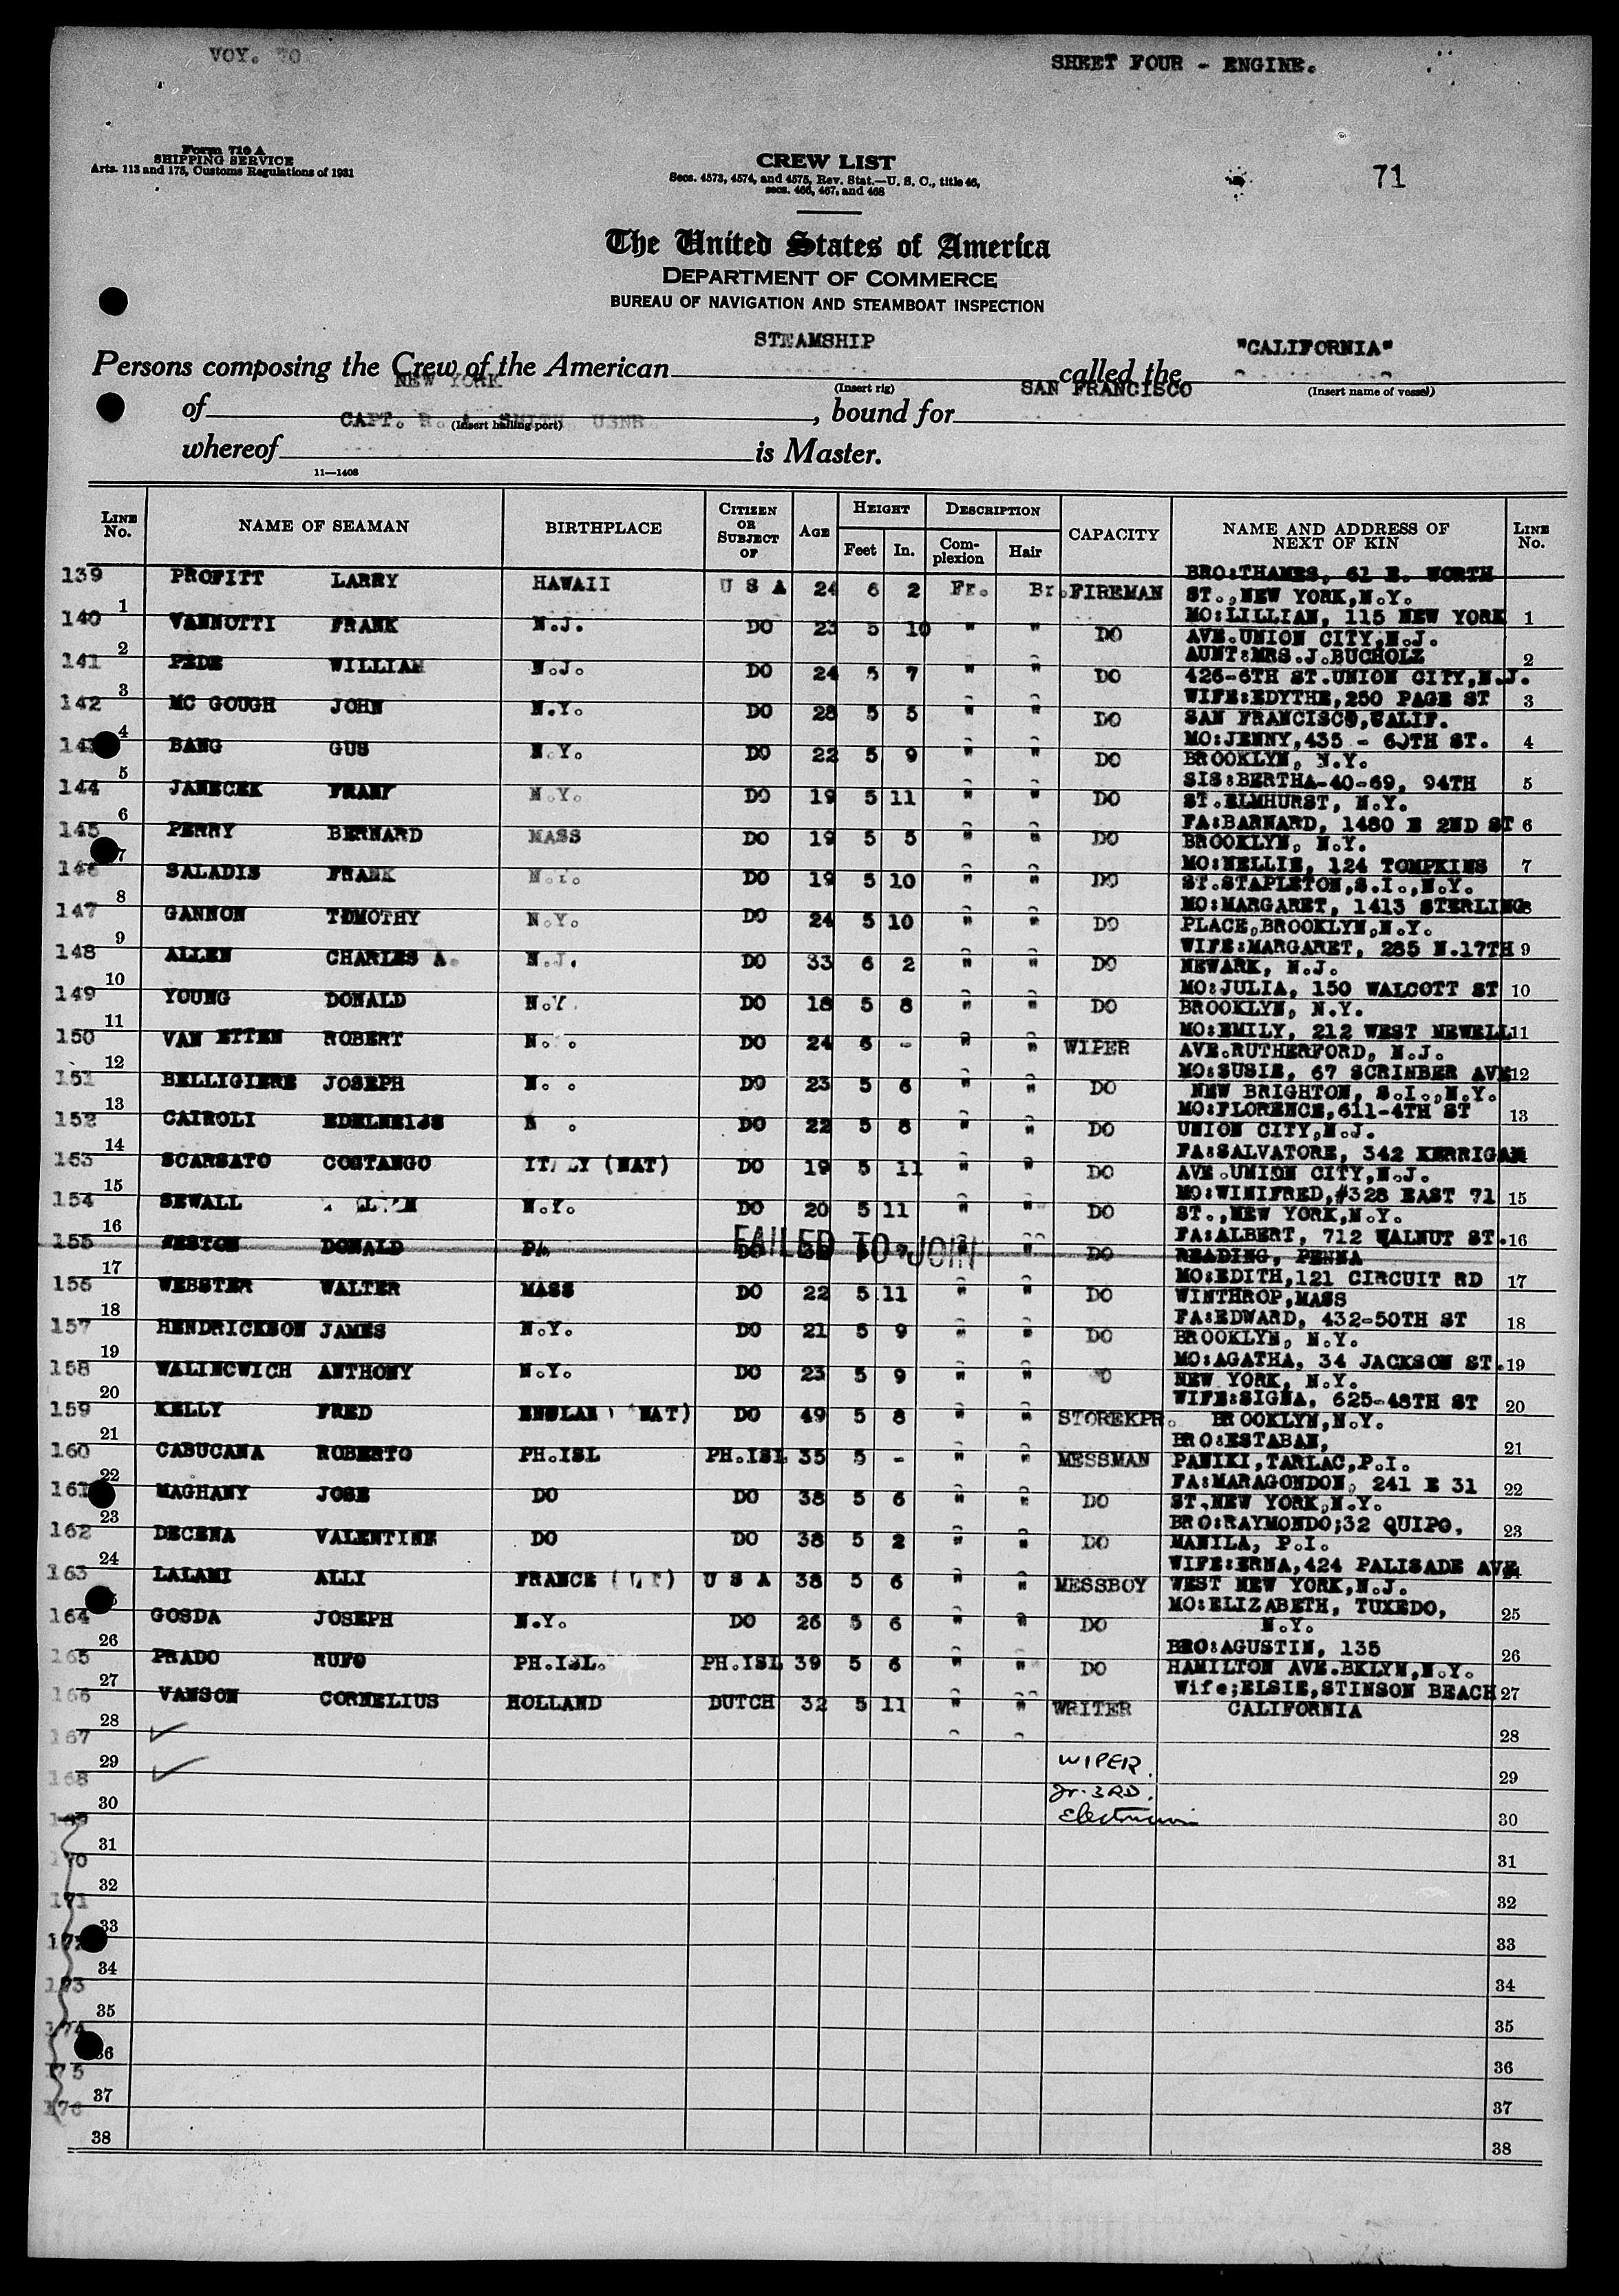 VOY. 70
SHEET FOUR - ENGINE.
Form 710 A
SHIPPING SERVICE
Arts. 113 and 175, Customs Regulations of 1931
CREW LIST
Secs. 4573, 4574, and 4575, Rev. Stat.—U. S. C., title 46,
secs. 466, 467, and 468
71
The United States of America
DEPARTMENT OF COMMERCE
BUREAU OF NAVIGATION AND STEAMBOAT INSPECTION
STEAMSHIP "CALIFORNIA"
Persons composing the Crew of the American called the
(Insert rig) (Insert name of vessel)
NEW YORK SAN FRANCISCO
of , bound for
CAPT. R. A. SMITH USNR. (Insert hailing port)
whereof is Master.
11—1408
LINE No. NAME OF SEAMAN BIRTHPLACE CITIZEN OR SUBJECT OF AGE HEIGHT Feet In. DESCRIPTION Complexion Hair CAPACITY NAME AND ADDRESS OF NEXT OF KIN LINE No.
BRO:THAMES, 61 E. WORTH
139 PROFITT LARRY HAWAII U S A 24 6 2 Fr. Br. FIREMAN ST., NEW YORK, N.Y.
1 MO:LILLIAN, 115 NEW YORK 1
140 VANNOTTI FRANK N.J. DO 23 5 10 " " DO AVE.UNION CITY, N.J.
2 AUNT:MRS.J.BUCHOLZ 2
141 PEDE WILLIAM N.J. DO 24 5 7 " " DO 426-6TH ST.UNION CITY, N.J.
3 WIFE:EDYTHE,250 PAGE ST 3
142 MC GOUGH JOHN N.Y. DO 28 5 5 " " DO SAN FRANCISCO,CALIF.
4 MO:JENNY,435 - 60TH ST. 4
143 BANG GUS N.Y. DO 22 5 9 " " DO BROOKLYN, N.Y.
5 SIS:BERTHA-40-69, 94TH 5
144 JANECEK FRANK N.Y. DO 19 5 11 " " DO ST.ELMHURST, N.Y.
6 FA:BARNARD, 1480 E 2ND ST 6
145 PERRY BERNARD MASS DO 19 5 5 " " DO BROOKLYN, N.Y.
7 MO:NELLIE, 124 TOMPKINS 7
146 SALADIS FRANK N.Y. DO 19 5 10 " " DO ST.STAPLETON,S.I.,N.Y.
8 MO:MARGARET, 1413 STERLING 8
147 GANNON TIMOTHY N.Y. DO 24 5 10 " " DO PLACE,BROOKLYN,N.Y.
9 WIFE:MARGARET, 285 N.17TH 9
148 ALLEN CHARLES A. N.J. DO 33 6 2 " " DO NEWARK, N.J.
10 MO:JULIA, 150 WALCOTT ST 10
149 YOUNG DONALD N.Y. DO 18 5 8 " " DO BROOKLYN, N.Y.
11 MO:EMILY, 212 WEST NEWELL 11
150 VAN ETTEN ROBERT N. DO 24 6 - " " WIPER AVE.RUTHERFORD, N.J.
12 MO:SUSIE, 67 SCRINBER AVE 12
151 BELLIGIERE JOSEPH N. DO 23 5 6 " " DO NEW BRIGHTON, S.I.,N.Y.
13 MO:FLORENCE,611-4TH ST 13
152 CAIROLI DO 22 5 8 " " DO UNION CITY,N.J.
14 FA:SALVATORE, 342 KERRIGAN
153 SCARSATO COSTANGO ITALY (NAT) DO 19 5 11 " " DO AVE.UNION CITY,N.J.
15 MO:WINIFRED,#328 EAST 71 15
154 SEWALL N.Y. DO 20 5 11 " " DO ST.,NEW YORK,N.Y.
16 FA:ALBERT, 712 WALNUT ST. 16
155 SESTON DONALD PA. DO FAILED TO JOIN " " DO READING, PENNA
17 MO:EDITH,121 CIRCUIT RD 17
156 WEBSTER WALTER MASS DO 22 5 11 " " DO WINTHROP,MASS
18 FA:EDWARD, 432-50TH ST 18
157 HENDRICKSON JAMES N.Y. DO 21 5 9 " " DO BROOKLYN, N.Y.
19 MO:AGATHA, 34 JACKSON ST. 19
158 WALINCWICH ANTHONY N.Y. DO 23 5 9 " " DO NEW YORK, N.Y.
20 WIFE:SIGNA, 625-48TH ST 20
159 KELLY FRED ENGLAND (NAT) DO 49 5 8 " " STOREKPR. BROOKLYN,N.Y.
21 BRO:ESTABAN, 21
160 CABUCANA ROBERTO PH.ISL PH.ISL 35 5 - " " MESSMAN PANIKI,TARLAC,P.I.
22 FA:MARAGONDON, 241 E 31 22
161 MAGHANY JOSE DO DO 38 5 6 " " DO ST.NEW YORK,N.Y.
23 BRO:RAYMONDO;32 QUIPO, 23
162 DECENA VALENTINE DO DO 38 5 2 " " DO MANILA, P.I.
24 WIFE:ERNA,424 PALISADE AVE 24
163 LALAMI ALLI FRANCE (NAT) U S A 38 5 6 " " MESSBOY WEST NEW YORK,N.J.
MO:ELIZABETH, TUXEDO, 25
164 GOSDA JOSEPH N.Y. DO 26 5 6 " " DO N.Y.
26 BRO:AGUSTIN, 135 26
165 PRADO RUFO PH.ISL. PH.ISL 39 5 6 " " DO HAMILTON AVE.BKLYN,N.Y.
27 Wife;ELSIE,STINSON BEACH 27
166 VANSON CORNELIUS HOLLAND DUTCH 32 5 11 " " WRITER CALIFORNIA
28 28
167 ✓
29 WIPER. 29
168 ✓ Jr. 3RD.
30 Electrician 30
169
31 31
170
32 32
171
33 33
172
34 34
173
35 35
174
36 36
175
37 37
176
38 38